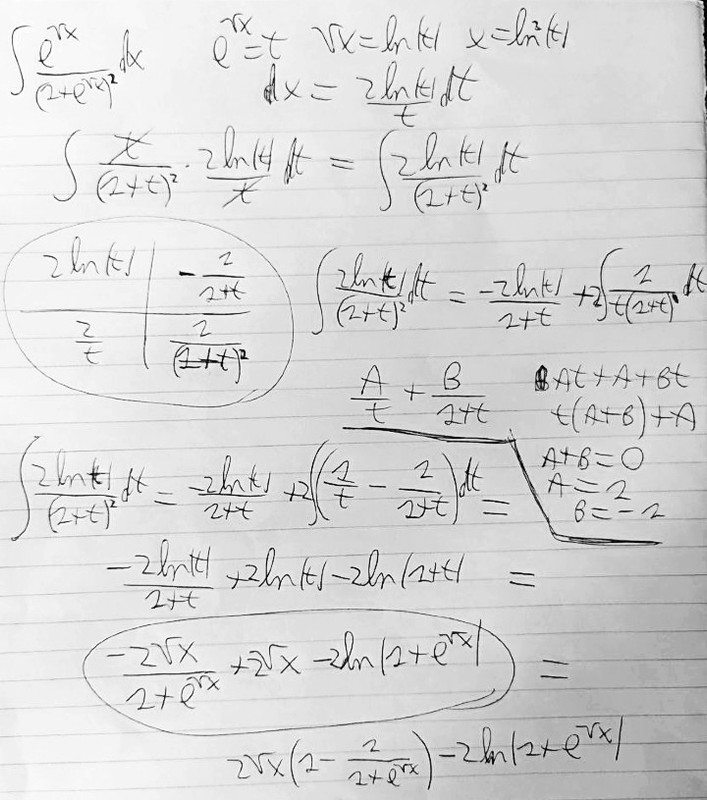 ∫ e^√x/(1+e^√x)² dx   e^√x = t   √x = ln|t|   x = ln²|t|
dx = 2ln|t|/t dt
∫ t/(1+t)² · 2ln|t|/t dt = ∫ 2ln|t|/(1+t)² dt
2ln|t| | -1/(1+t)
2/t | 1/(1+t)²
∫ 2ln|t|/(1+t)² dt = -2ln|t|/(1+t) + 2∫ 1/(t(1+t)) dt
A/t + B/(1+t)   At + A + Bt
t(A+B) + A
A+B = 0
A = 1
B = -1
∫ 2ln|t|/(1+t)² dt = -2ln|t|/(1+t) + 2∫(1/t - 1/(1+t)) dt =
-2ln|t|/(1+t) + 2ln|t| - 2ln|1+t| =
-2√x/(1+e^√x) + 2√x - 2ln|1+e^√x| =
2√x(1 - 1/(1+e^√x)) - 2ln|1+e^√x|